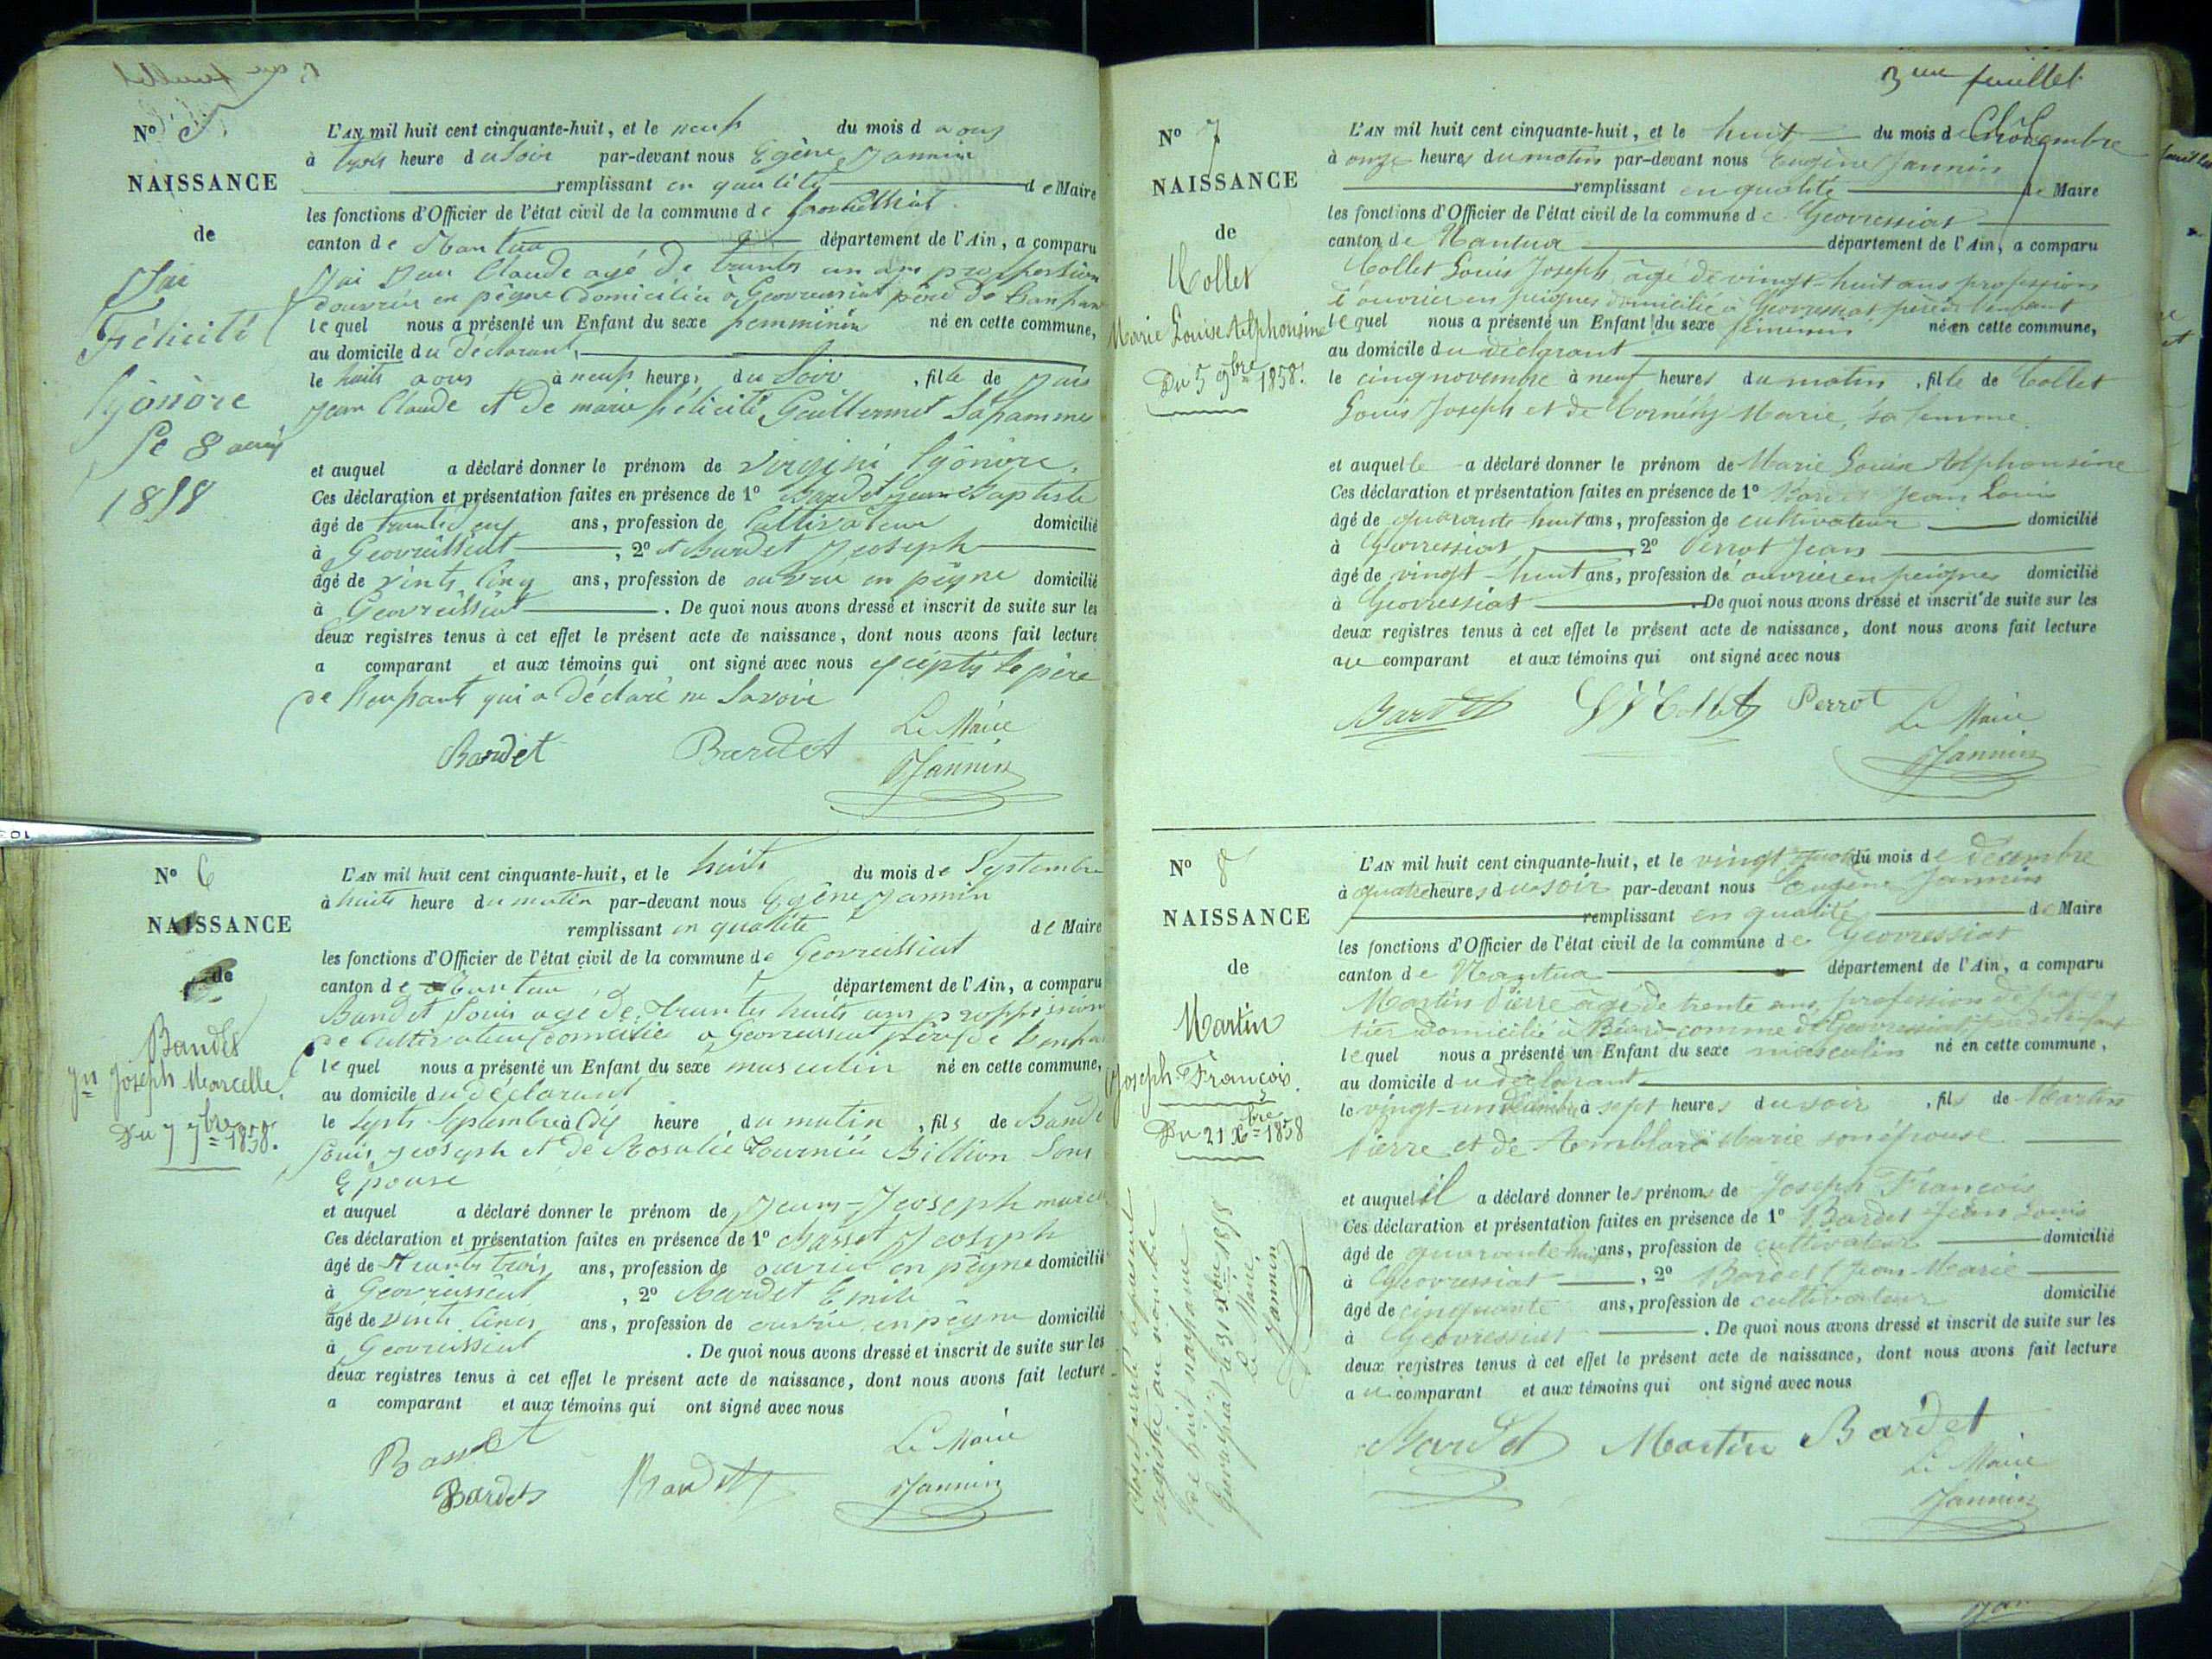 N° 5
NAISSANCE
de
Jai
Félicité
Le 8
1858
L'AN mil huit cent cinquante-huit, et le neuf du mois d aous
à trois heure du Soir par-devant nous Egène Jannin
remplissant en qualité de Maire
les fonctions d'Officier de l'état civil de la commune de
canton de Nantua département de l'Ain, a comparu
Jai Jean Claude agé de trante un ans proffession
douvrier en pêgne domicilié à père de
le quel nous a présenté un Enfant du sexe femminin né en cette commune,
au domicile du déclarant,
le huits aous à neuf heures du Soir, fille de Jai
Jean Claude et de marie félicité Guillermet Sa fammes
et auquel a déclaré donner le prénom de Virgini
Ces déclaration et présentation faites en présence de 1° Bardet Jean Baptiste
âgé de ans, profession de Cultivateur domicilié
à , 2° Bardet Jeoseph
âgé de vints cinq ans, profession de ouvrie en pêgne domicilié
à . De quoi nous avons dressé et inscrit de suite sur les
deux registres tenus à cet effet le présent acte de naissance, dont nous avons fait lecture
a comparant et aux témoins qui ont signé avec nous le père
de qui a déclaré ne Savoir
Bardet Bardet Le Maire
Jannin
N° 6
NAISSANCE
de
Bardet
Jn Joseph Marcelle.
Du 7 7bre 1858.
L'AN mil huit cent cinquante-huit, et le huits du mois de Septembre
à huits heure du matin par-devant nous Egène Jannin
remplissant en qualité de Maire
les fonctions d'Officier de l'état civil de la commune de
canton de Nantua département de l'Ain, a comparu
Bardet Louis agé de trante huits ans proffession
de Cultivateur domicilié a père de
le quel nous a présenté un Enfant du sexe masculin né en cette commune,
au domicile du déclarant
le septs Septembre à dix heure du matin, fils de Bardet
Louis Jeoseph et de Rosalie Billion Sons
Epouse
et auquel a déclaré donner le prénom de Jean-Jeoseph
Ces déclaration et présentation faites en présence de 1° Basset Jeoseph
âgé de trante trois ans, profession de ouvrier en pêgne domicilié
à , 2° Bardet Emile
âgé de vints ans, profession de ouvrie en pêgne domicilié
à . De quoi nous avons dressé et inscrit de suite sur les
deux registres tenus à cet effet le présent acte de naissance, dont nous avons fait lecture
a comparant et aux témoins qui ont signé avec nous
Basset Le Maire
Bardet Bardet Jannin
3me feuillet
N° 7
NAISSANCE
de
Collet
Marie Louise Alphonsine
Du 5 9bre 1858.
L'AN mil huit cent cinquante-huit, et le huit du mois de Novembre
à onze heures du matin par-devant nous Eugène Jannin
remplissant en qualité de Maire
les fonctions d'Officier de l'état civil de la commune de Geovressiat
canton de Nantua département de l'Ain, a comparu
Collet Louis Joseph, âgé de vingt-huit ans profession
d'ouvrier en peignes domicilié à Geovressiat père de l'enfant
lequel nous a présenté un Enfant du sexe féminin né en cette commune,
au domicile du déclarant
le cinq novembre à neuf heures du matin, fille de Collet
Louis Joseph et de Marie, sa femme.
et auquelle a déclaré donner le prénom de Marie Louise Alphonsine
Ces déclaration et présentation faites en présence de 1° Bardet Jean Louis
âgé de quarante-huit ans, profession de cultivateur domicilié
à Geovressiat, 2° Perrot Jean
âgé de vingt-huit ans, profession de ouvrier en peignes domicilié
à Geovressiat. De quoi nous avons dressé et inscrit de suite sur les
deux registres tenus à cet effet le présent acte de naissance, dont nous avons fait lecture
au comparant et aux témoins qui ont signé avec nous
Bardet Collet Perrot Le Maire
Jannin
N° 8
NAISSANCE
de
Martin
Joseph François.
Du 21 Xbre 1858
L'AN mil huit cent cinquante-huit, et le vingt quatre du mois de décembre
à quatre heures du soir par-devant nous Eugène Jannin
remplissant en qualité de Maire
les fonctions d'Officier de l'état civil de la commune de Geovressiat
canton de Nantua département de l'Ain, a comparu
Martin Pierre âgé de trente ans, profession de
domicilié à
lequel nous a présenté un Enfant du sexe masculin né en cette commune,
au domicile du déclarant
le vingt-un décembre à sept heures du soir, fils de Martin
Pierre et de Marie son épouse
et auquel il a déclaré donner les prénoms de Joseph François
Ces déclaration et présentation faites en présence de 1° Bardet Jean Louis
âgé de quarante huit ans, profession de cultivateur domicilié
à Geovressiat, 2° Bardet Jean Marie
âgé de cinquante ans, profession de cultivateur domicilié
à Geovressiat. De quoi nous avons dressé et inscrit de suite sur les
deux registres tenus à cet effet le présent acte de naissance, dont nous avons fait lecture
au comparant et aux témoins qui ont signé avec nous
Bardet Martin Bardet
Le Maire
Jannin
Clos et arrêté le présent
registre au nombre
de huit naissance
le 31 Xbre 1858
Le Maire,
Jannin